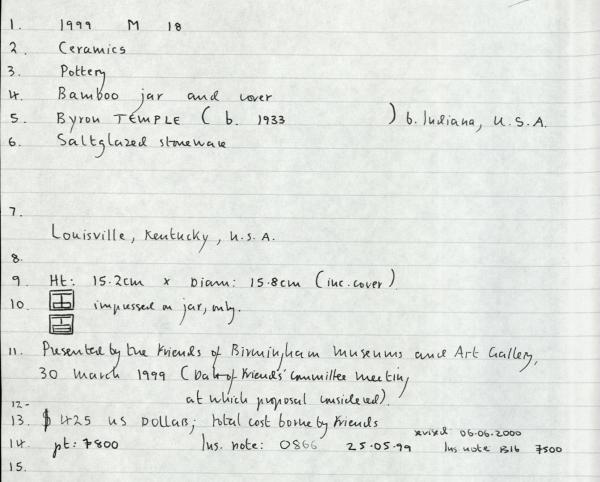 1. 1999 M 18
2. Ceramics
3. Pottery
4. Bamboo jar and cover
5. Byron TEMPLE ( b. 1933 ) b. Indiana, U.S.A.
6. Saltglazed stoneware
7.
Louisville, Kentucky, U.S.A.
8.
9. Ht: 15.2cm x Diam: 15.8cm (inc. cover)
10. impressed on jar, only.
11. Presented by the Friends of Birmingham Museums and Art Gallery,
30 March 1999 (Date of Friends' Committee meeting
at which proposal considered).
12.
13. $ 425 US Dollars; total cost borne by Friends
revised 06.06.2000
14. pt: 7800 Ins. note: 0866 25.05.99 Ins note B16 7500
15.